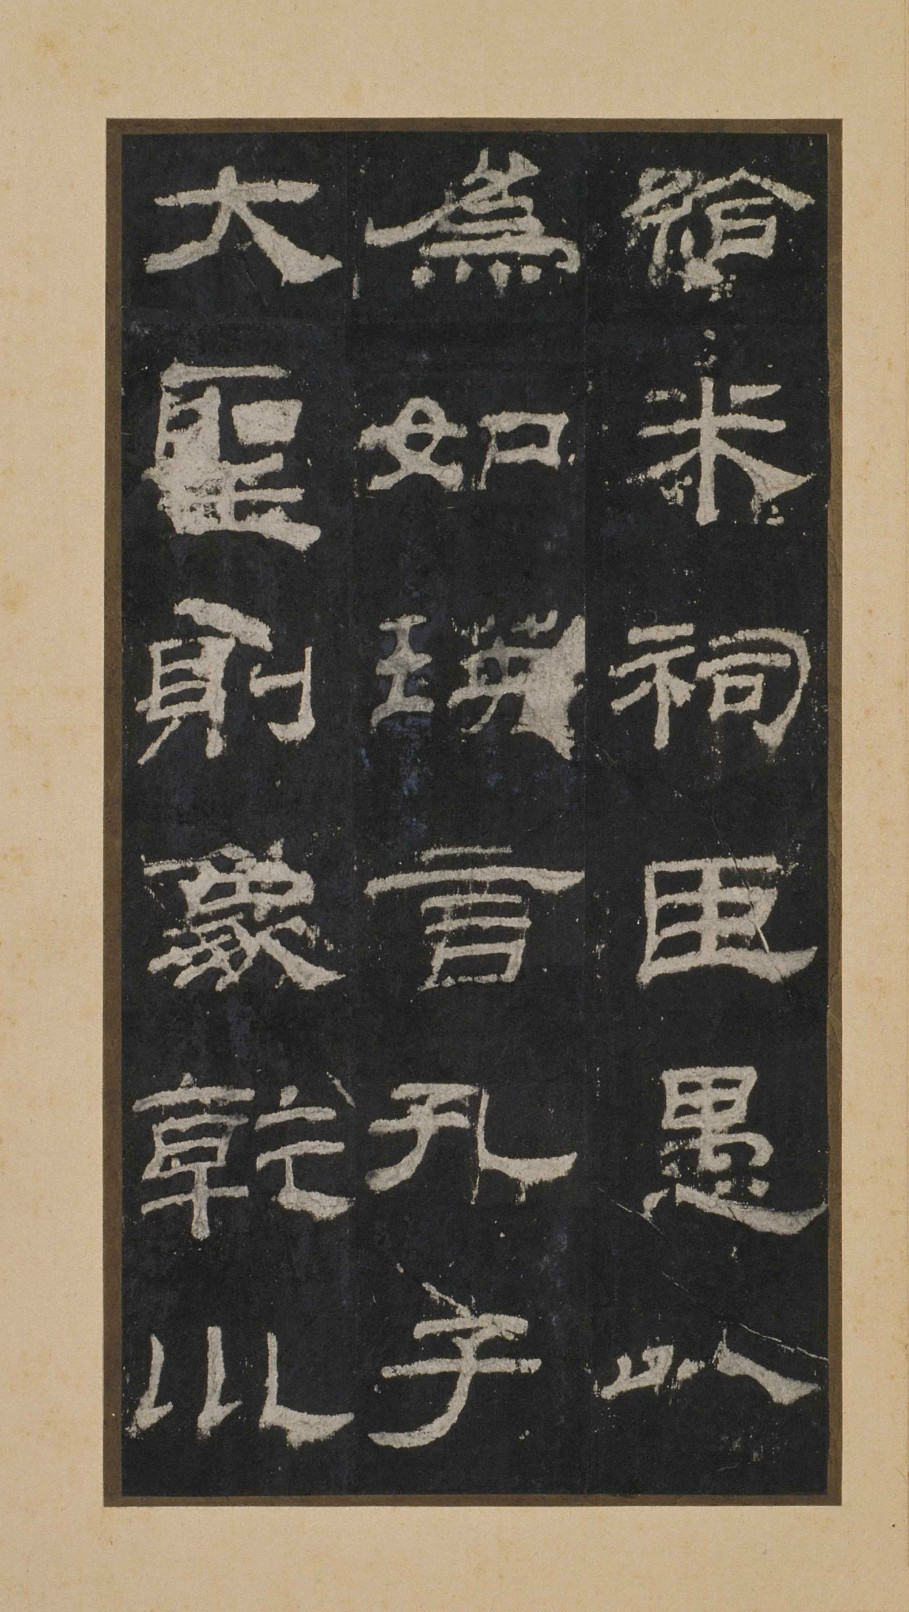 給米祠臣愚以
爲如瑛言孔子
大聖則象乾川